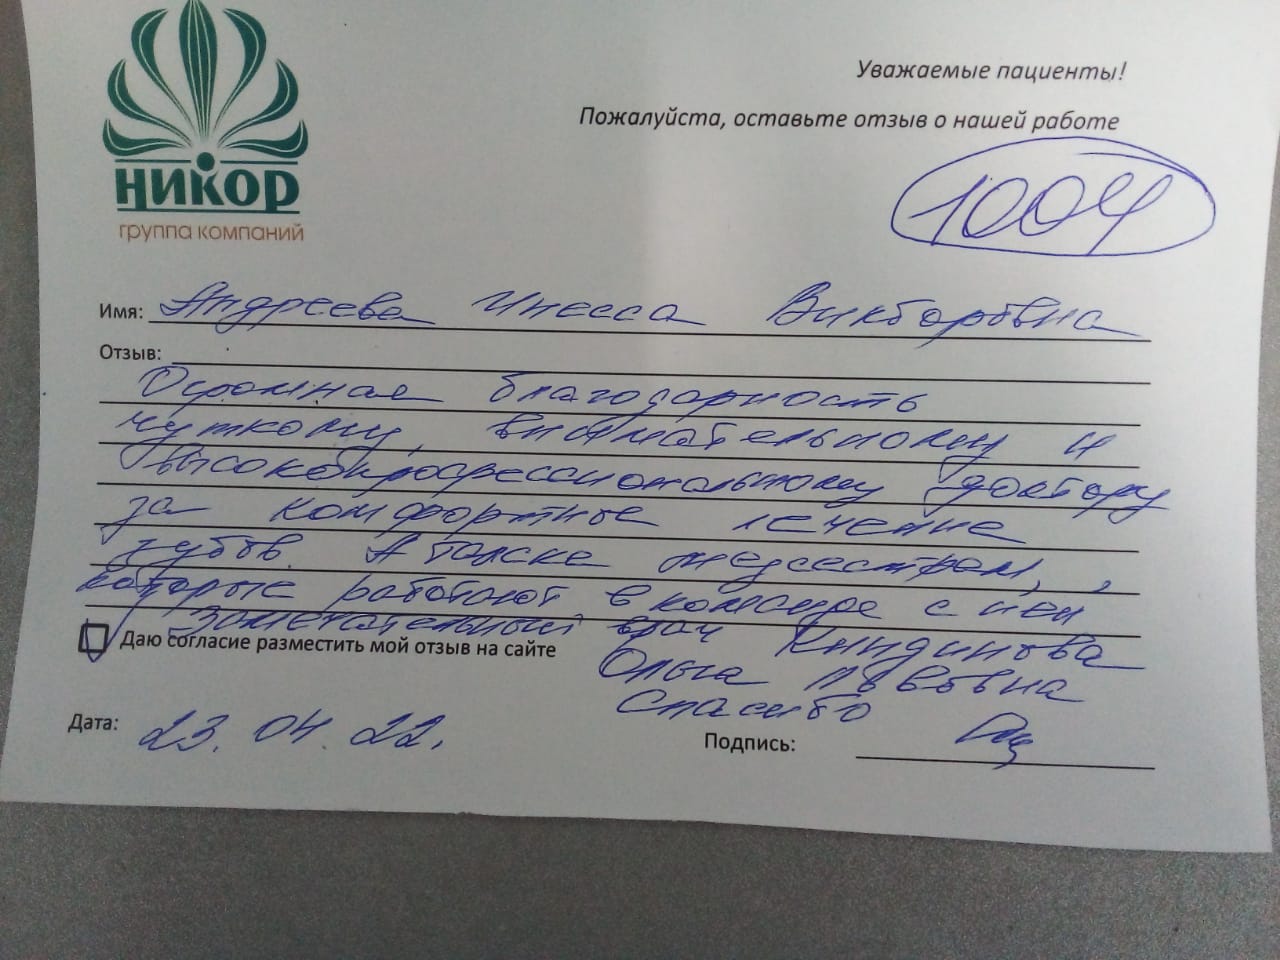 НИКОР
группа компаний
Уважаемые пациенты!
Пожалуйста, оставьте отзыв о нашей работе
1004
Имя: Андреева Инесса Викторовна
Отзыв:
Огромная благодарность
чуткому, внимательному и
высокопрофессиональному доктору
за комфортное лечение
зубов. А также медсестрам,
которые работают в команде с ней
Замечательный врач Киндинова
Даю согласие разместить мой отзыв на сайте
Ольга Львовна
Спасибо
Дата: 23.04.22.
Подпись: